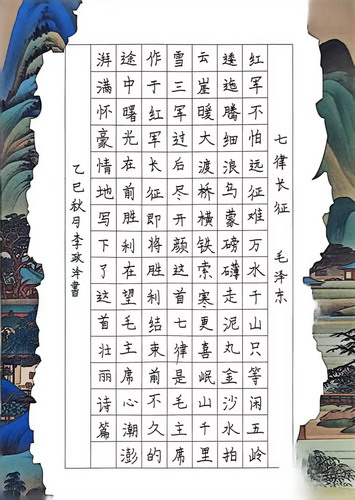 七律长征 毛泽东
红军不怕远征难万水千山只等闲五岭
逶迤腾细浪乌蒙磅礴走泥丸金沙水拍
云崖暖大渡桥横铁索寒更喜岷山千里
雪三军过后尽开颜这首七律是毛主席
作于红军长征即将胜利结束前不久的
途中曙光在前胜利在望毛主席心潮澎
湃满怀豪情地写下了这首壮丽诗篇
乙巳秋月李政書